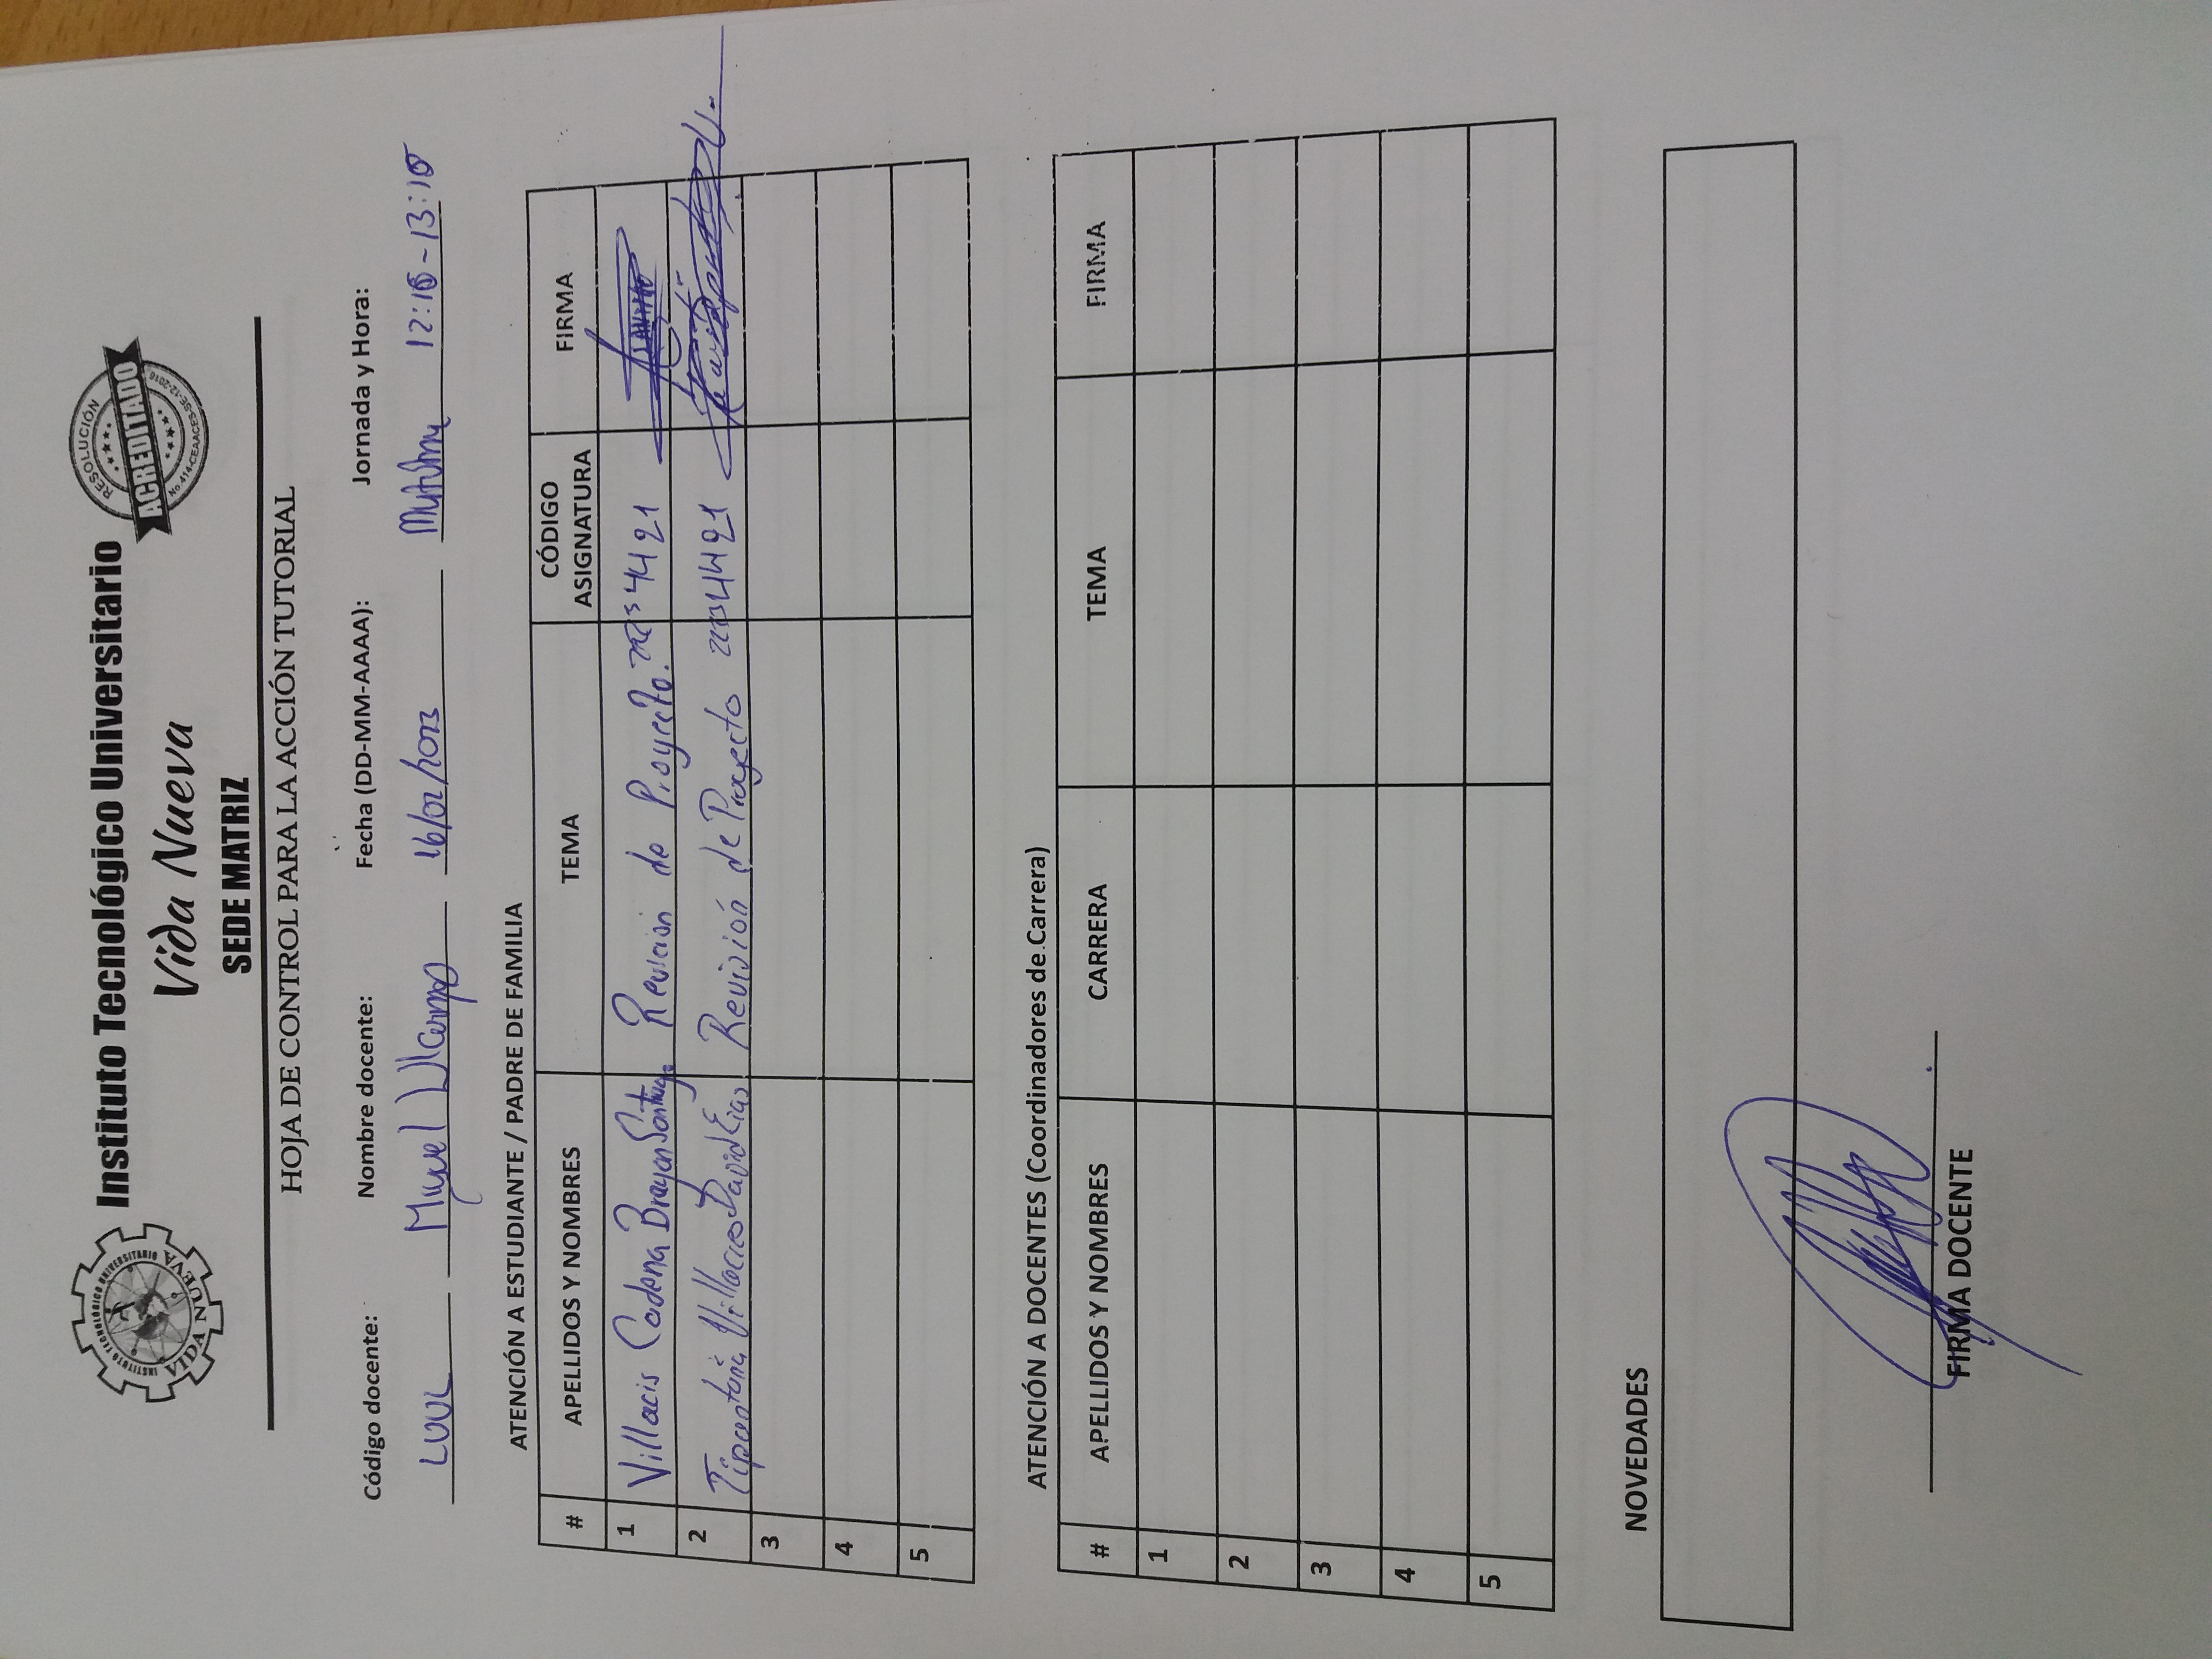 INSTITUTO TECNOLÓGICO UNIVERSITARIO
VIDA NUEVA
Instituto Tecnológico Universitario
Vida Nueva
SEDE MATRIZ
RESOLUCIÓN
ACREDITADO
No. 414-CEAACES-SE-12-2016
HOJA DE CONTROL PARA LA ACCIÓN TUTORIAL
Código docente: Nombre docente: Fecha (DD-MM-AAAA): Jornada y Hora:
Miguel 16/02/2023 12:10-13:10
ATENCIÓN A ESTUDIANTE / PADRE DE FAMILIA
# APELLIDOS Y NOMBRES TEMA CÓDIGO ASIGNATURA FIRMA
1 Villacis Cadena Brayan Santiago Revicion de Proyecto. 4421
2 Tipantuña Villacres David Revisión de Proyecto 4421
3
4
5
ATENCIÓN A DOCENTES (Coordinadores de Carrera)
# APELLIDOS Y NOMBRES CARRERA TEMA FIRMA
1
2
3
4
5
NOVEDADES
FIRMA DOCENTE